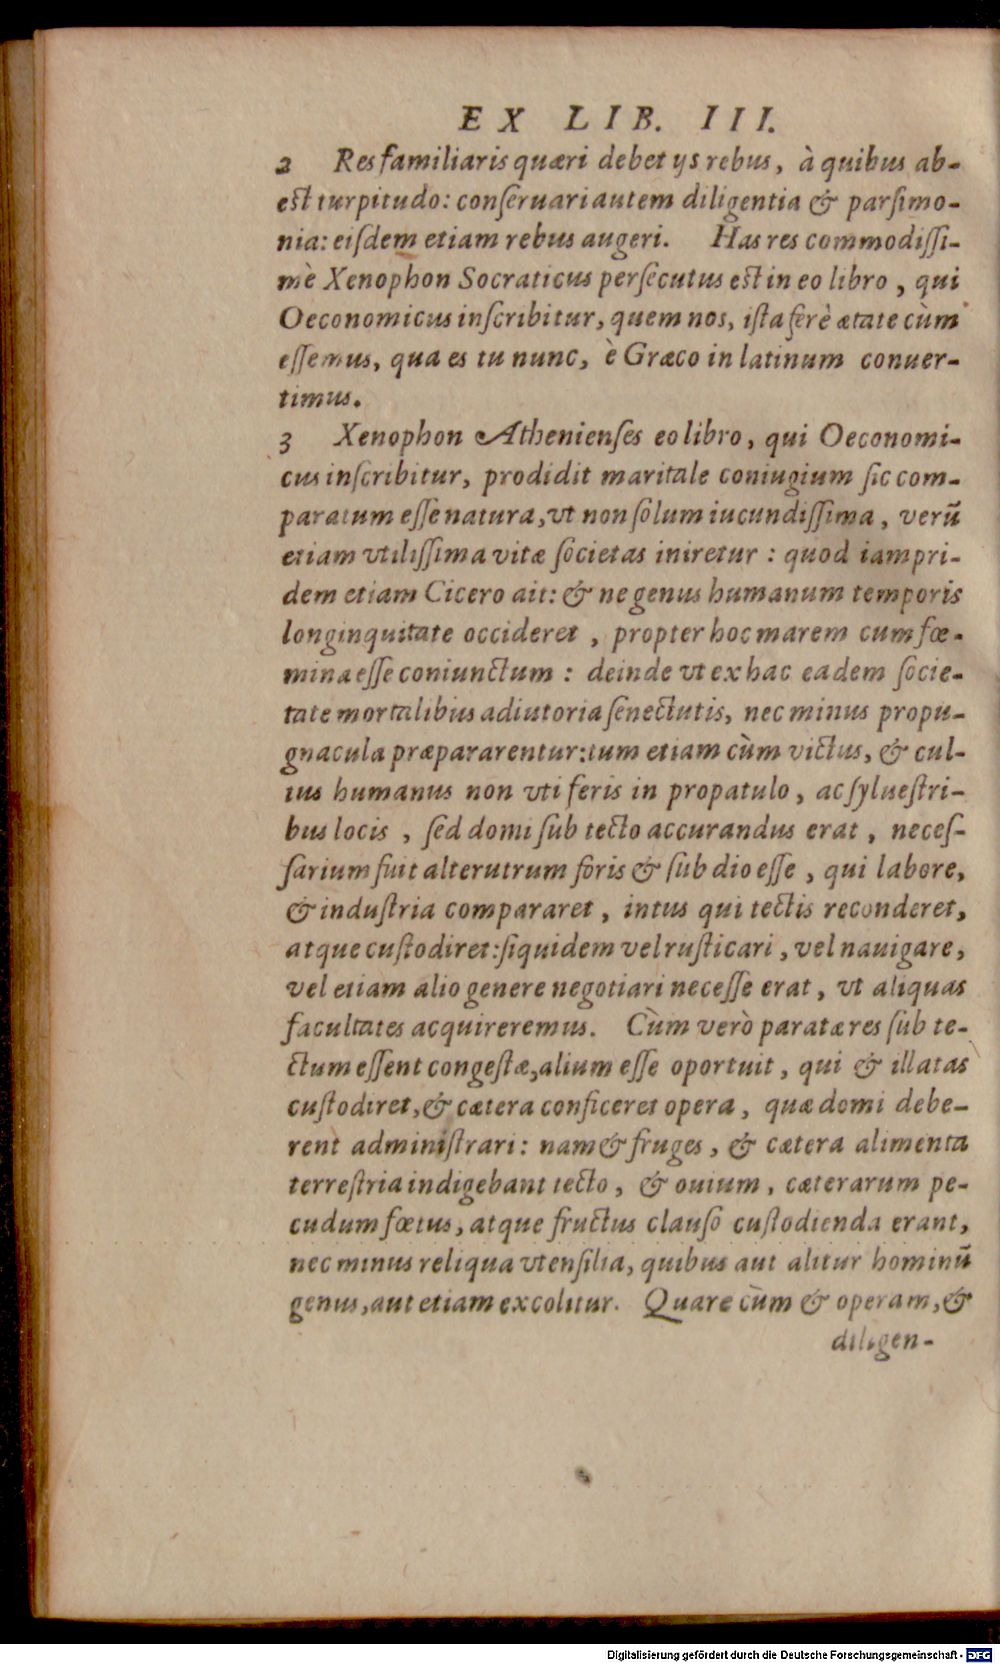 EX LIB. III.
2 Res familiaris quæri debet ijs rebus, à quibus ab-
est turpitudo: conſeruari autem diligentia & parſimo-
nia: eiſdem etiam rebus augeri. Has res commodiſſi-
mè Xenophon Socraticus perſecutus est in eo libro, qui
Oeconomicus inſcribitur, quem nos, iſta ferè ætate cùm
eſſemus, qua es tu nunc, è Græco in latinum conuer-
timus.
3 Xenophon Athenienſes eo libro, qui Oeconomi-
cus inſcribitur, prodidit maritale coniugium ſic com-
paratum eſſe natura, vt non ſolum iucundiſſima, verũ
etiam vtiliſſima vitæ ſocietas iniretur: quod iampri-
dem etiam Cicero ait: & ne genus humanum temporis
longinquitate occideret, propter hoc marem cum fœ-
mina eſſe coniunctum: deinde vt ex hac eadem ſocie-
tate mortalibius adiutoria ſenectutis, nec minus propu-
gnacula præpararentur: tum etiam cùm victus, & cul-
tus humanus non vti feris in propatulo, ac ſylueſtri-
bus locis, ſed domi ſub tecto accurandus erat, neceſ-
ſarium fuit alterutrum foris & ſub dio eſſe, qui labore,
& induſtria compararet, intus qui tectis reconderet,
atque cuſtodiret: ſiquidem vel ruſticari, vel nauigare,
vel etiam alio genere negotiari neceſſe erat, vt aliquas
facultates acquireremus. Cùm verò paratæ res ſub te-
ctum eſſent congeſtæ, alium eſſe oportuit, qui & illatas
cuſtodiret, & cætera conficeret opera, quæ domi debe-
rent adminiſtrari: nam & fruges, & cætera alimenta
terreſtria indigebant tecto, & ouium, cæterarum pe-
cudum fœtus, atque fructus clauſo cuſtodienda erant,
nec minus reliqua vtenſilia, quibus aut alitur hominũ
genus, aut etiam excolitur. Quare cùm & operam, &
diligen-
Digitalisierung gefördert durch die Deutsche Forschungsgemeinschaft - DFG